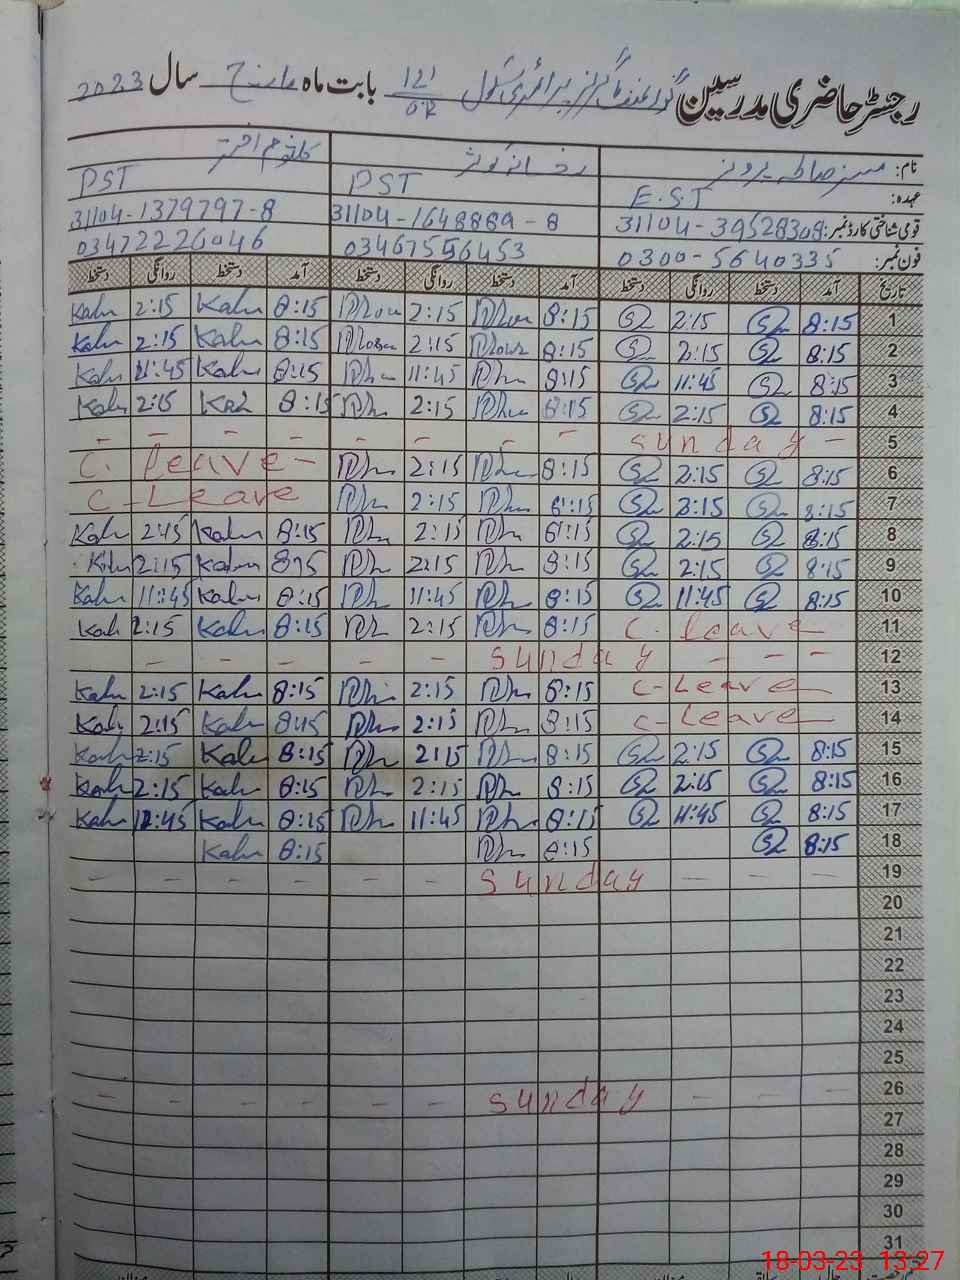 رجسٹر حاضری مدرسین گورنمنٹ گرلز پرائمری سکول 121/D.R بابت ماہ مارچ سال 2023
نام: مسز صائمہ پرویز رخسانہ کوثر کلثوم اختر
عہدہ: E.S.T PST PST
قومی شناختی کارڈ نمبر: 31104-1648889-8 31104-1379797-8
فون نمبر: 0300-5640335 03467556453 03472226046
تاریخ آمد دستخط روانگی دستخط آمد دستخط روانگی دستخط آمد دستخط روانگی دستخط
1 8:15 2:15 8:15 2:15 8:15 Kalu 2:15 Kalu
2 8:15 2:15 8:15 2:15 8:15 Kalu 2:15 Kalu
3 8:15 11:45 8:15 11:45 8:15 Kalu 11:45 Kalu
4 8:15 2:15 8:15 2:15 8:15 Kal 2:15 Kalu
5 - - - - - - - - sunday -
6 8:15 2:15 8:15 2:15 C. leave -
7 8:15 2:15 8:15 2:15 C-Leave
8 8:15 2:15 8:15 2:15 8:15 Kalu 2:45 Kalu
9 8:15 2:15 8:15 2:15 8:15 Kalu 2:15 Kalu
10 8:15 11:45 8:15 11:45 8:15 Kalu 11:45 Kalu
11 C. leave 8:15 2:15 8:15 Kalu 2:15 Kal
12 - - - - - sunday - - -
13 C-Leave 8:15 2:15 8:15 Kalu 2:15 Kalu
14 C-Leave 8:15 2:15 8:15 Kalu 2:15 Kalu
15 8:15 2:15 8:15 2:15 8:15 Kalu 2:15 Kalu
16 8:15 2:15 8:15 2:15 8:15 Kalu 2:15 Kalu
17 8:15 11:45 8:15 11:45 8:15 Kalu 11:45 Kalu
18 8:15 8:15 8:15 Kalu
19 - - - - - - sunday - - -
20
21
22
23
24
25
26 - - - - - - sunday - - -
27
28
29
30
31
18-03-23 13:27